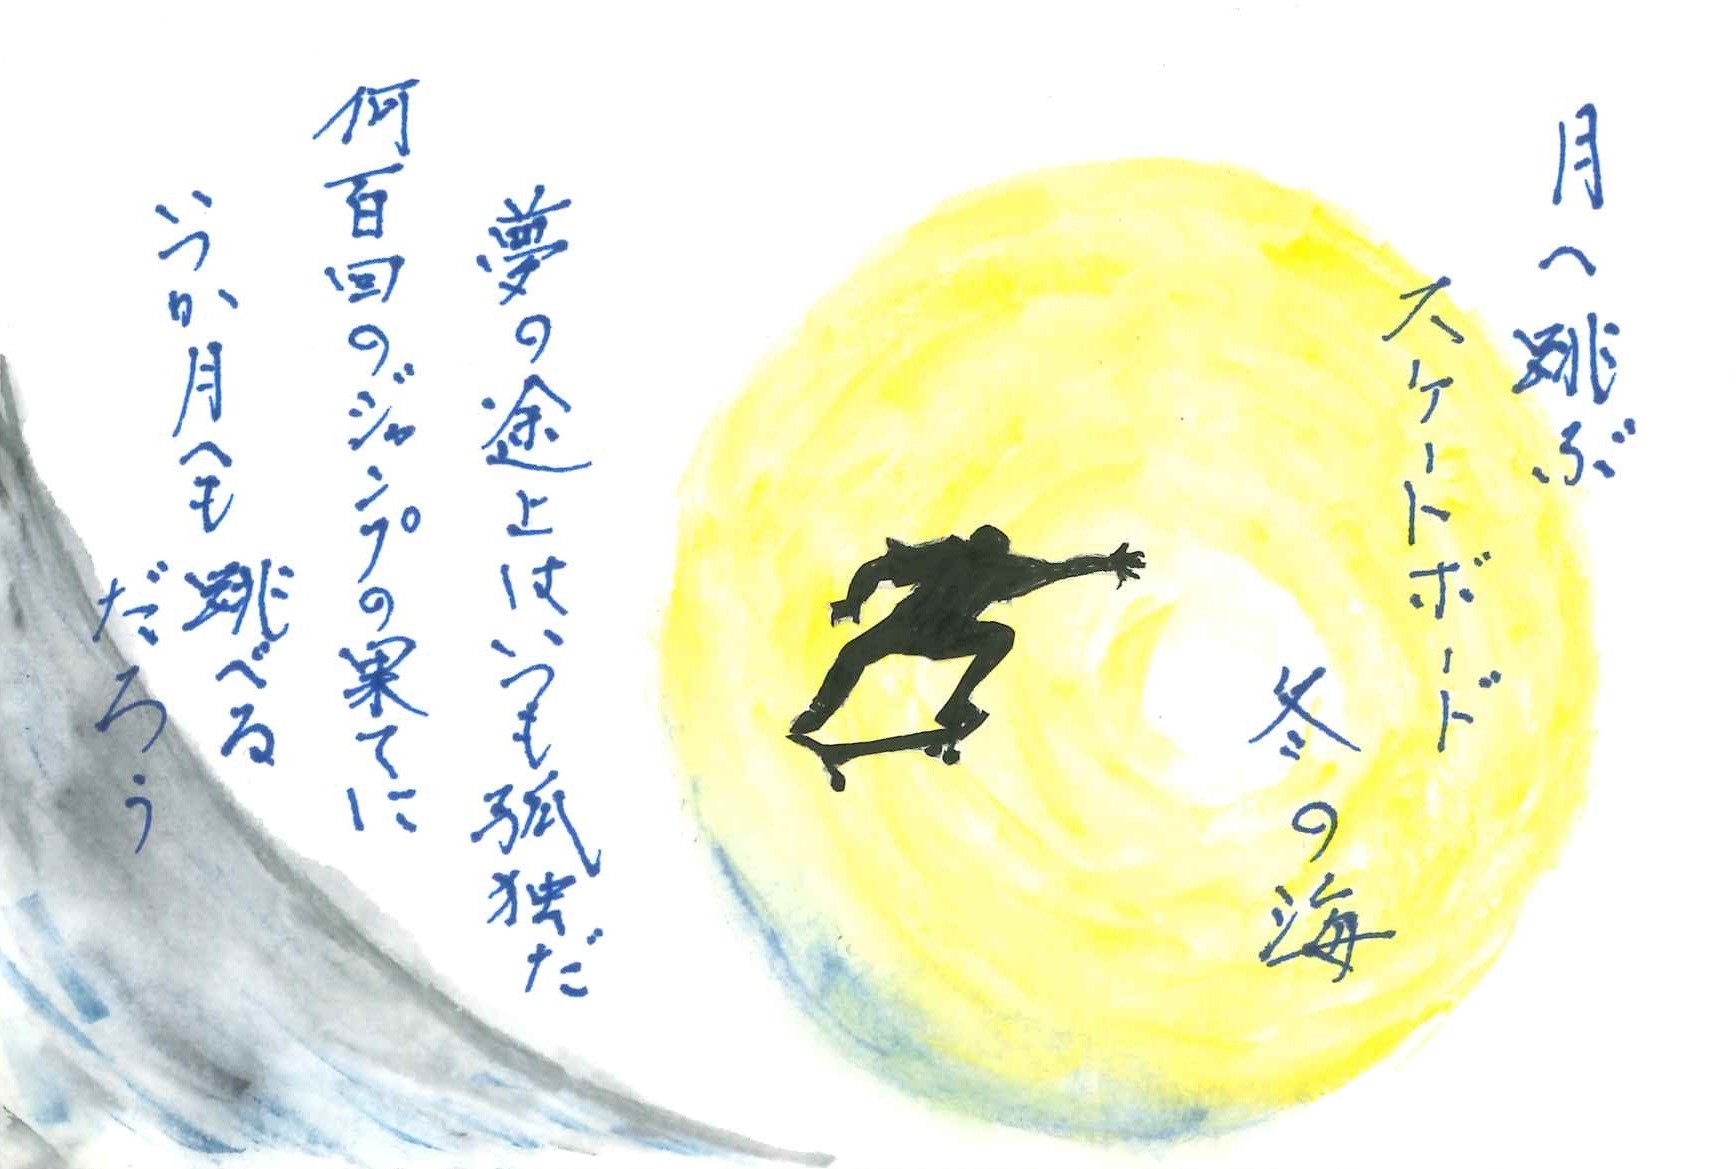 月へ跳ぶ
スケートボード
冬の海
夢の途上はいつも孤独だ
何百回のジャンプの果てに
いつか月へも跳べる
だろう